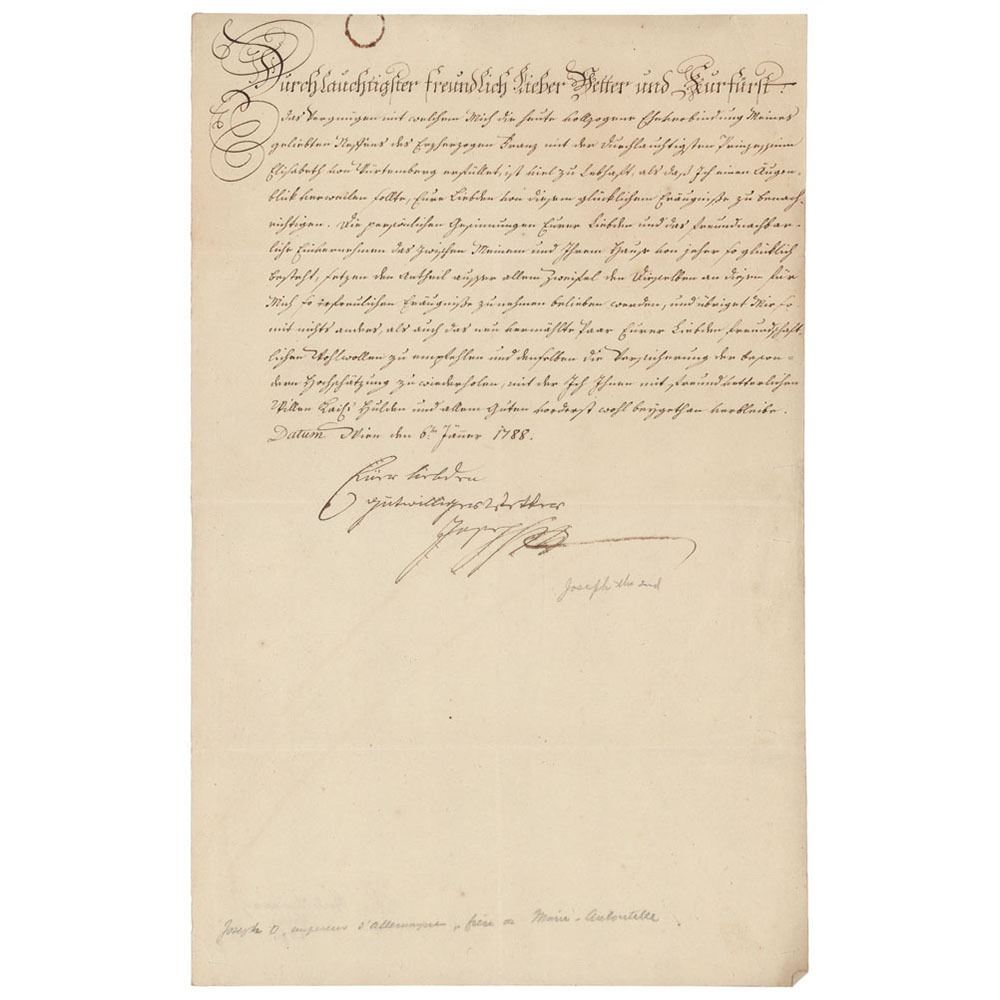 Durchlauchtigster freundlich lieber Vetter und Kurfürst.
Das Vergnügen mit welchem Mich die heute vollzogene Eheverbindung Meines
geliebten Neffens des Erzherzogen Franz mit der Durchlauchtigsten Prinzessinn
Elisabeth von Würtemberg erfüllet, ist viel zu lebhaft, als daß Ich einen Augen-
blick verweilen sollte, Eure Liebden von diesem glücklichen Eräugniße zu benach-
richtigen. Die persönlichen Gesinnungen Eurer Liebden und das freundnachbar-
liche Einvernehmen das zwischen Meinem und Ihrem Hause von jeher so glücklich
besteht, setzen den Antheil ausser allem Zweifel den Dieselben an diesem für
Mich so erfreulichen Eräugniße zu nehmen belieben werden, und übriget Mir so
mit nichts anders, als auch das neu vermählte Paar Eurer Liebden freundschaft-
lichen Wohlwollen zu empfehlen und denselben die Versicherung der beson-
dern Hochschätzung zu wiederholen, mit der Ich Ihnen mit freundvetterlichen
Willen Kais: Hulden und allem Guten vorderst wohl beygethan verbleibe.
Datum Wien den 6ten Jänner 1788.
Euer liebden
gutwilliger Vetter
Joseph
Joseph the 2nd
Joseph II, empereur d'Allemagne, frère de Marie-Antoinette